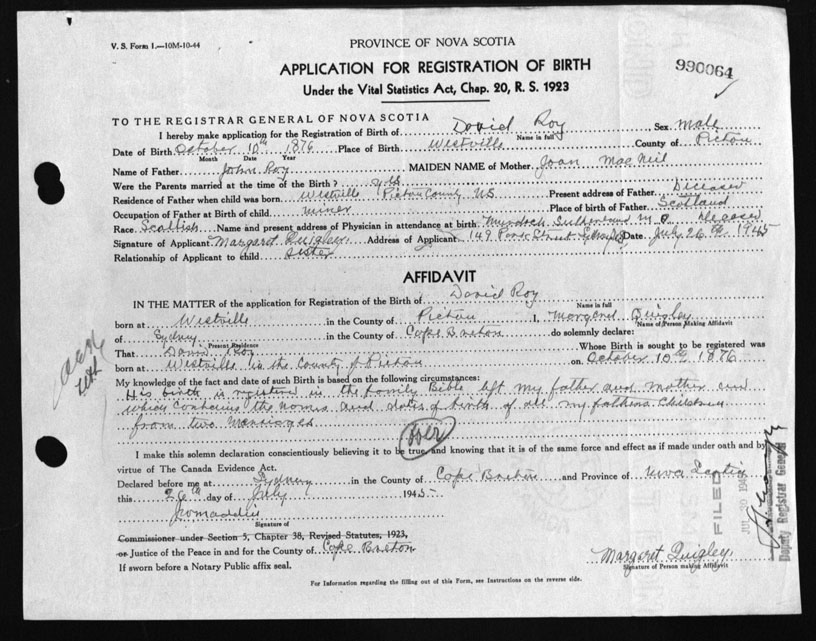 V. S. Form 1.—10M-10-44
PROVINCE OF NOVA SCOTIA
APPLICATION FOR REGISTRATION OF BIRTH
990064
Under the Vital Statistics Act, Chap. 20, R. S. 1923
TO THE REGISTRAR GENERAL OF NOVA SCOTIA
I hereby make application for the Registration of Birth of David Roy Sex Male
Name in full
Date of Birth October 10th 1876 Place of Birth Westville County of Pictou
Month Date Year
Name of Father John Roy MAIDEN NAME of Mother Joan MacNeil
Were the Parents married at the time of the Birth? yes
Residence of Father when child was born Westville Pictou County NS Present address of Father Deceased
Occupation of Father at Birth of child miner Place of birth of Father Scotland
Race Scottish Name and present address of Physician in attendance at birth Murdoch Sutherland M.D. deceased
Signature of Applicant Margaret Quigley Address of Applicant 149 Street Sydney Date July 26th 1945
Relationship of Applicant to child sister
AFFIDAVIT
IN THE MATTER of the application for Registration of the Birth of David Roy
Name in full
born at Westville in the County of Pictou I, Margaret Quigley
Name of Person Making Affidavit
of Sydney in the County of Cape Breton do solemnly declare:
Present Residence
That David Roy Whose Birth is sought to be registered was
born at Westville in the County of Pictou on October 10th 1876
My knowledge of the fact and date of such Birth is based on the following circumstances:
His birth is registered in the family Bible left my father and mother and
which contains the names and dates of birth of all my fathers children
from two marriages
over
I make this solemn declaration conscientiously believing it to be true, and knowing that it is of the same force and effect as if made under oath and by
virtue of The Canada Evidence Act.
Declared before me at Sydney in the County of Cape Breton and Province of Nova Scotia
this 26th day of July 1945
Signature of
Commissioner under Section 5, Chapter 38, Revised Statutes, 1923,
or Justice of the Peace in and for the County of Cape Breton
If sworn before a Notary Public affix seal.
Margaret Quigley
Signature of Person making Affidavit
For Information regarding the filling out of this Form, see Instructions on the reverse side.
FILED
JUL 30 1945
Deputy Registrar General